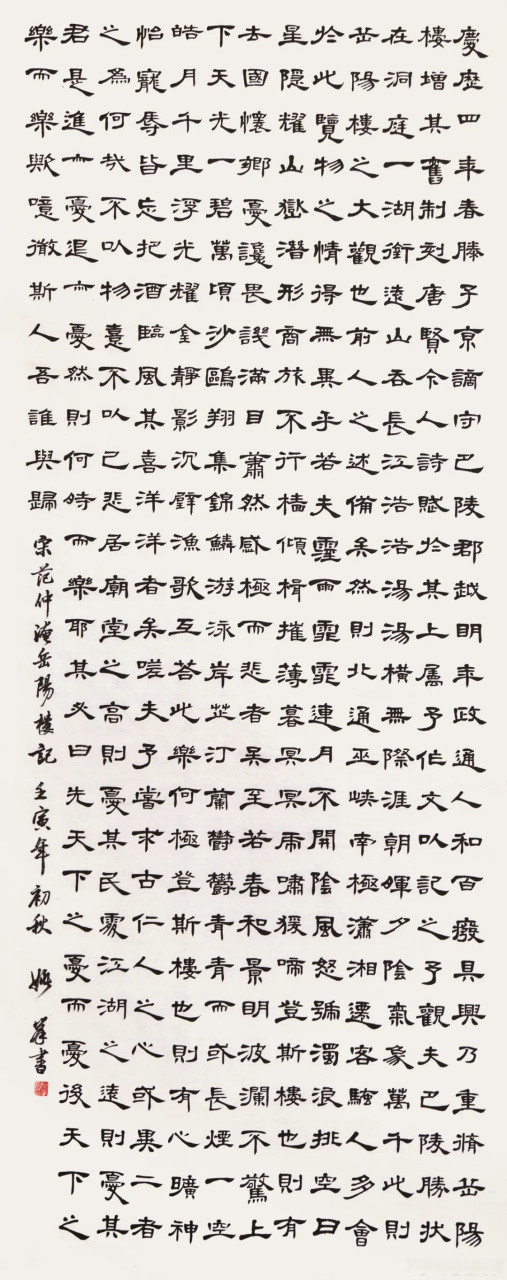 慶歷四年春滕子京謫守巴陵郡越明年政通人和百廢具興乃重脩岳陽
樓增其舊制刻唐賢今人詩賦於其上屬予作文以記之予觀夫巴陵勝狀
在洞庭一湖銜遠山吞長江浩浩湯湯橫無際涯朝暉夕陰氣象萬千此則
岳陽樓之大觀也前人之述備矣然則北通巫峽南極瀟湘遷客騷人多會
於此覽物之情得無異乎若夫霪雨霏霏連月不開陰風怒號濁浪排空日
星隱耀山嶽潛形商旅不行檣傾楫摧薄暮冥冥虎嘯猿啼登斯樓也則有
去國懷鄉憂讒畏譏滿目蕭然感極而悲者矣至若春和景明波瀾不驚上
下天光一碧萬頃沙鷗翔集錦鱗游泳岸芷汀蘭鬱鬱青青而或長煙一空
皓月千里浮光耀金靜影沉璧漁歌互答此樂何極登斯樓也則有心曠神
怡寵辱皆忘把酒臨風其喜洋洋者矣嗟夫予嘗求古仁人之心或異二者
之為何哉不以物喜不以己悲居廟堂之高則憂其民處江湖之遠則憂其
君是進亦憂退亦憂然則何時而樂耶其必曰先天下之憂而憂後天下之
樂而樂歟噫微斯人吾誰與歸
宋范仲淹岳陽樓記 壬寅年初秋 書